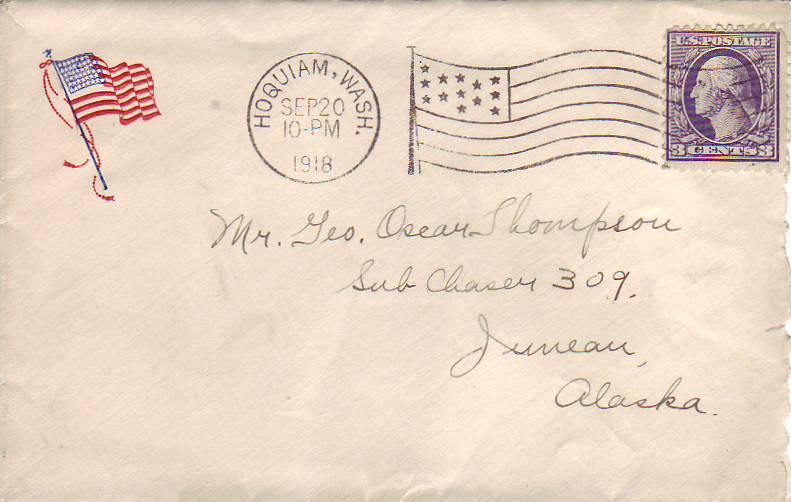 HOQUIAM, WASH.
SEP 20
10-PM
1918
U.S. POSTAGE
3 CENTS 3
Mr. Geo. Oscar Thompson
Sub Chaser 309.
Juneau,
Alaska.